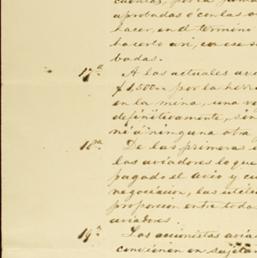 cuentas, por la
aprobadas ó con las
hacer, en el termino
hacerlo asi, ca
badas.
17ª A las actuales
$1,500= por la
en la mina, una
definitivamente, sin
ni á ninguna otra
18ª De las primeras
los aviadores lo que
pagado el avio y
negociacion, las
proporcion entre
aviadores.
19ª Los accionistas
convienen en